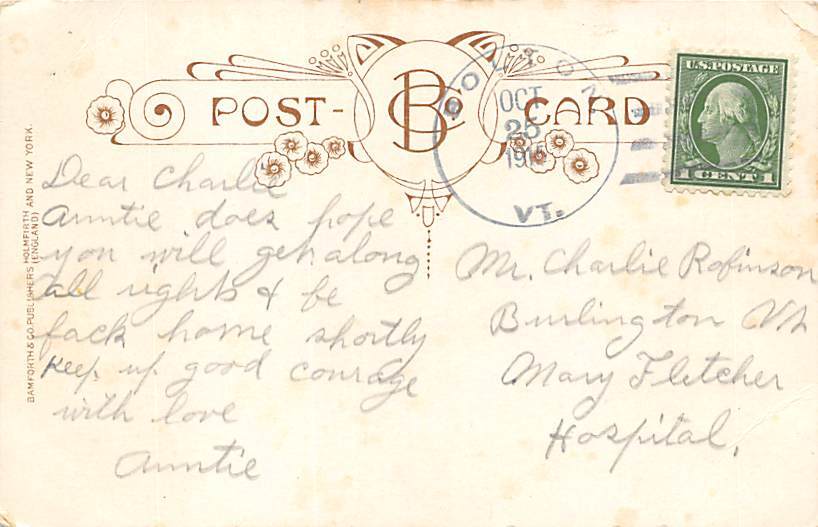 POST- BC CARD
BOLTON
OCT
25
1915
VT.
U.S. POSTAGE
1 CENT 1
BAMFORTH & CO. PUBLISHERS HOLMFIRTH AND NEW YORK.
(ENGLAND)
Dear Charlie
Auntie does hope
you will get along
all right & be
back home shortly
Keep up good courage
with love
Auntie
Mr. Charlie Robinson
Burlington Vt
Mary Fletcher
Hospital,